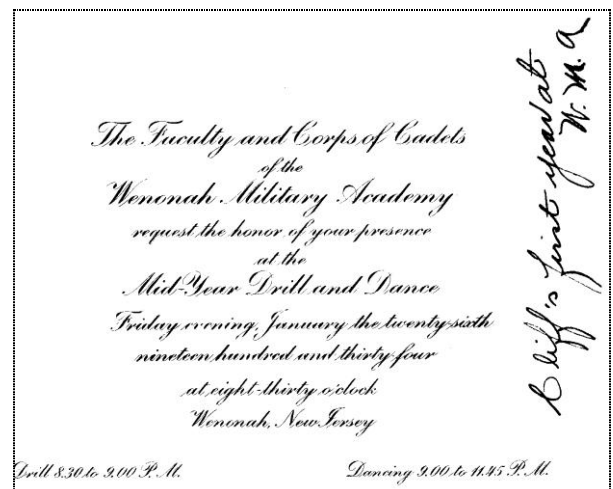 The Faculty and Corps of Cadets
of the
Wenonah Military Academy
request the honor of your presence
at the
Mid-Year Drill and Dance
Friday evening, January the twenty-sixth
nineteen hundred and thirty-four
at eight-thirty o'clock
Wenonah, New Jersey
Drill 8.30 to 9.00 P. M.
Dancing 9.00 to 11.45 P. M.
Cliff's first year at
W. M. A